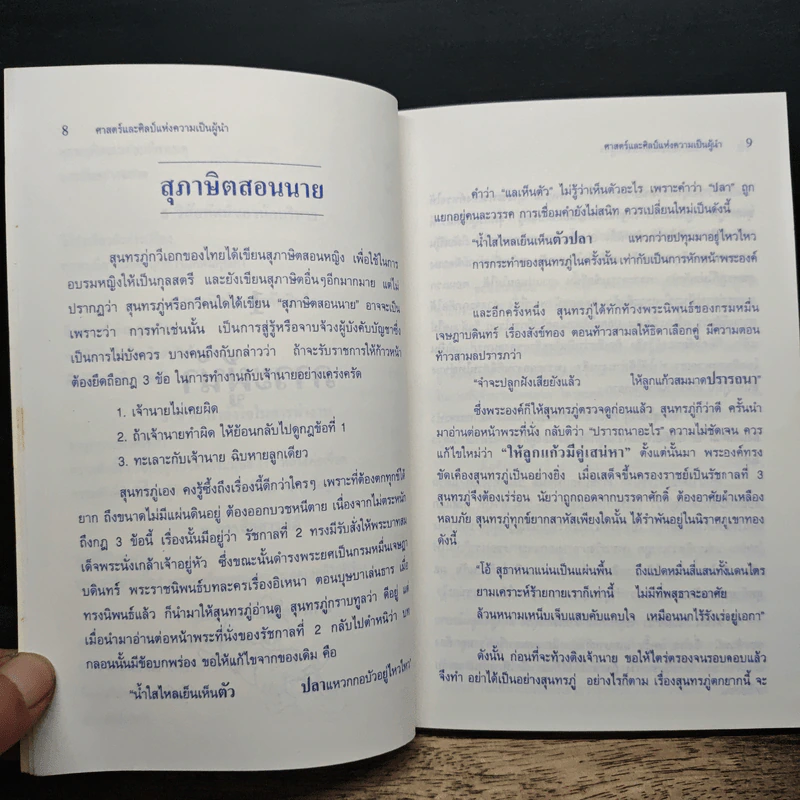 8 ศาสตร์และศิลป์แห่งความเป็นผู้นำ
สุภาษิตสอนนาย
สุนทรภู่กวีเอกของไทยได้เขียนสุภาษิตสอนหญิง เพื่อใช้ในการ
อบรมหญิงให้เป็นกุลสตรี และยังเขียนสุภาษิตอื่นๆอีกมากมาย แต่ไม่
ปรากฏว่า สุนทรภู่หรือกวีคนใดได้เขียน “สุภาษิตสอนนาย” อาจจะเป็น
เพราะว่า การทำเช่นนั้น เป็นการสู่รู้หรือจาบจ้วงผู้บังคับบัญชาซึ่ง
เป็นการไม่บังควร บางคนถึงกับกล่าวว่า ถ้าจะรับราชการให้ก้าวหน้า
ต้องยึดถือกฎ 3 ข้อ ในการทำงานกับเจ้านายอย่างเคร่งครัด
1. เจ้านายไม่เคยผิด
2. ถ้าเจ้านายทำผิด ให้ย้อนกลับไปดูกฎข้อที่ 1
3. ทะเลาะกับเจ้านาย ฉิบหายลูกเดียว
สุนทรภู่เอง คงรู้ซึ้งถึงเรื่องนี้ดีกว่าใครๆ เพราะที่ต้องตกทุกข์ได้
ยาก ถึงขนาดไม่มีแผ่นดินอยู่ ต้องออกบวชหนีตาย เนื่องจากไม่ตระหนัก
ถึงกฎ 3 ข้อนี้ เรื่องนั้นมีอยู่ว่า รัชกาลที่ 2 ทรงมีรับสั่งให้พระบาทสม
เด็จพระนั่งเกล้าเจ้าอยู่หัว ซึ่งขณะนั้นดำรงพระยศเป็นกรมหมื่นเจษฎา
บดินทร์ พระราชนิพนธ์บทละครเรื่องอิเหนา ตอนบุษบาเล่นธาร เมื่อ
ทรงนิพนธ์แล้ว ก็นำมาให้สุนทรภู่อ่านดู สุนทรภู่กราบทูลว่า ดีอยู่ แต่
เมื่อนำมาอ่านต่อหน้าพระที่นั่งของรัชกาลที่ 2 กลับไปตำหนิว่า บท
กลอนนั้นมีข้อบกพร่อง ขอให้แก้ไขจากของเดิม คือ
“น้ำใสไหลเย็นเห็นตัว ปลาแหวกกอบัวอยู่ไหวไหว”
ศาสตร์และศิลป์แห่งความเป็นผู้นำ 9
คำว่า “แลเห็นตัว” ไม่รู้ว่าเห็นตัวอะไร เพราะคำว่า “ปลา” ถูก
แยกอยู่คนละวรรค การเชื่อมคำยังไม่สนิท ควรเปลี่ยนใหม่เป็นดังนี้
“น้ำใสไหลเย็นเห็นตัวปลา แหวกว่ายปทุมมาอยู่ไหวไหว
การกระทำของสุนทรภู่ในครั้งนั้น เท่ากับเป็นการหักหน้าพระองค์
และอีกครั้งหนึ่ง สุนทรภู่ได้ทักท้วงพระนิพนธ์ของกรมหมื่น
เจษฎาบดินทร์ เรื่องสังข์ทอง ตอนท้าวสามลให้ธิดาเลือกคู่ มีความตอน
ท้าวสามลปรารภว่า
“จำจะปลูกฝังเสียยังแล้ว ให้ลูกแก้วสมมาดปรารถนา”
ซึ่งพระองค์ก็ให้สุนทรภู่ตรวจดูก่อนแล้ว สุนทรภู่ก็ว่าดี ครั้นนำ
มาอ่านต่อหน้าพระที่นั่ง กลับติว่า “ปรารถนาอะไร” ความไม่ชัดเจน ควร
แก้ไขใหม่ว่า “ให้ลูกแก้วมีคู่เสน่หา” ตั้งแต่นั้นมา พระองค์ทรง
ขัดเคืองสุนทรภู่เป็นอย่างยิ่ง เมื่อเสด็จขึ้นครองราชย์เป็นรัชกาลที่ 3
สุนทรภู่จึงต้องเร่ร่อน นัยว่าถูกถอดจากบรรดาศักดิ์ ต้องอาศัยผ้าเหลือง
หลบภัย สุนทรภู่ทุกข์ยากสาหัสเพียงใดนั้น ได้รำพันอยู่ในนิราศภูเขาทอง
ดังนี้
“โอ้ สุธาหนาแน่นเป็นแผ่นพื้น ถึงแปดหมื่นสี่แสนทั้งแดนไตร
ยามเคราะห์ร้ายกายเราก็เท่านี้ ไม่มีที่พสุธาจะอาศัย
ล้วนหนามเหน็บเจ็บแสบคับแคบใจ เหมือนนกไร้รังเร่อยู่เอกา”
ดังนั้น ก่อนที่จะท้วงติงเจ้านาย ขอให้ไตร่ตรองจนรอบคอบแล้ว
จึงทำ อย่าได้เป็นอย่างสุนทรภู่ อย่างไรก็ตาม เรื่องสุนทรภู่ตกยากนี้ จะ